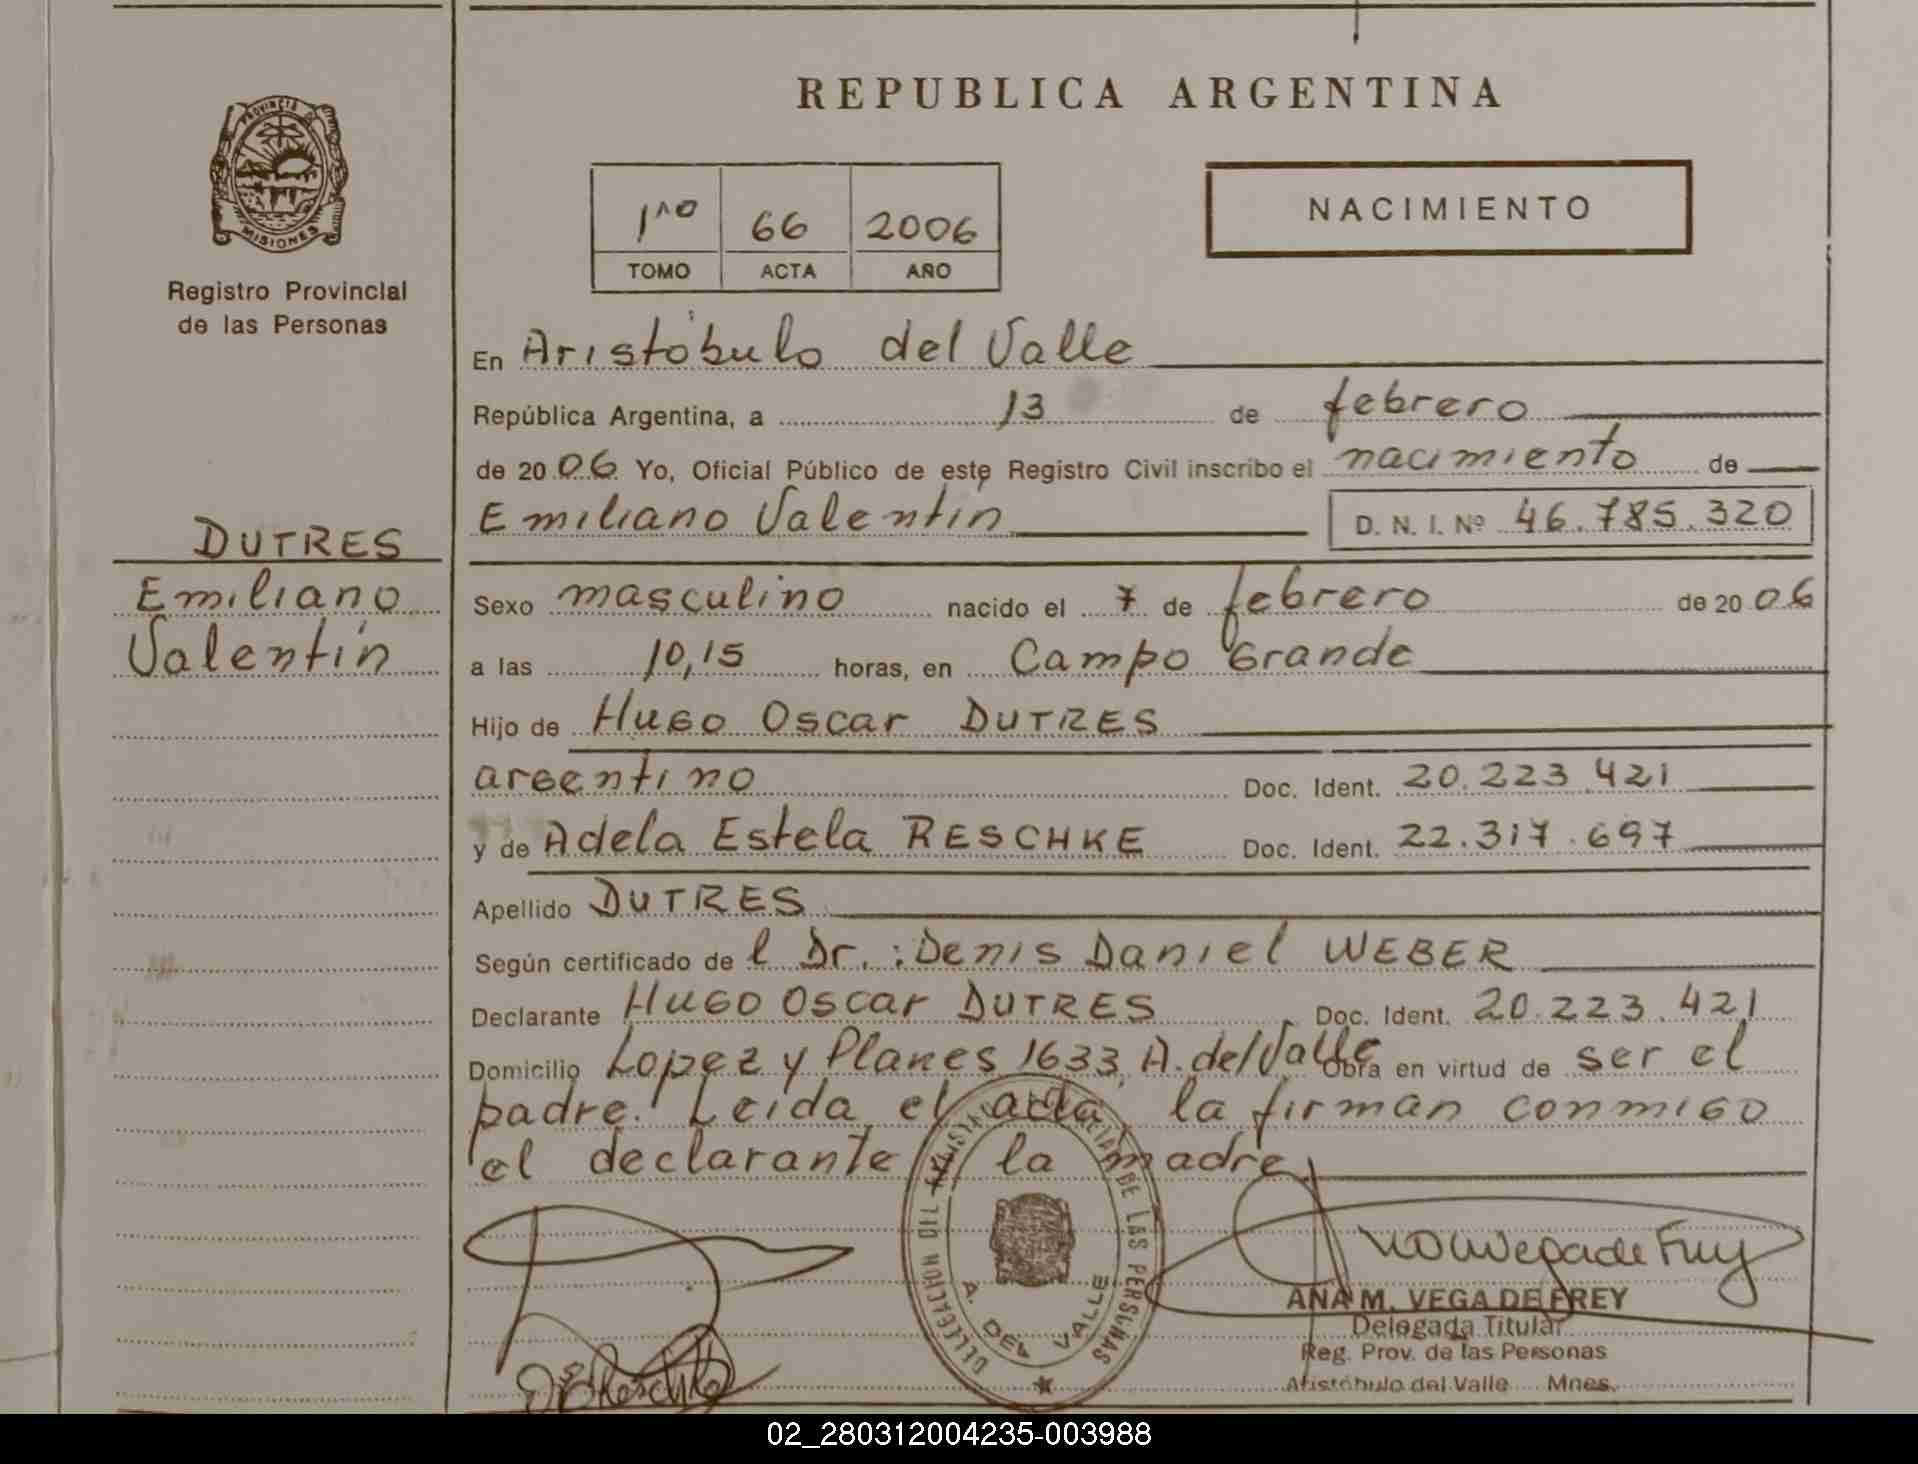 REPUBLICA ARGENTINA
PROVINCIA DE
MISIONES
Registro Provincial
de las Personas
1ro 66 2006
TOMO ACTA AÑO
NACIMIENTO
En Aristóbulo del Valle
República Argentina, a 13 de febrero
de 2006 Yo, Oficial Público de este Registro Civil inscribo el nacimiento de
Emiliano Valentín D. N. I. Nº 46.785.320
DUTRES
Emiliano
Valentín
Sexo masculino nacido el 7 de febrero de 2006
a las 10,15 horas, en Campo Grande
Hijo de Hugo Oscar DUTRES
argentino Doc. Ident. 20.223.421
y de Adela Estela RESCHKE Doc. Ident. 22.317.697
Apellido DUTRES
Según certificado de l Dr.: Denis Daniel WEBER
Declarante Hugo Oscar DUTRES Doc. Ident. 20.223.421
Domicilio Lopez y Planes 1633, A. del Valle Obra en virtud de ser el
padre. Leida el acta, la firman conmigo
el declarante la madre
DELEGACION DEL REGISTRO PROVINCIAL DE LAS PERSONAS
A. DEL VALLE
ANA M. VEGA DE FREY
Delegada Titular
Reg. Prov. de las Personas
Aristóbulo del Valle Mnes.
02_280312004235-003988